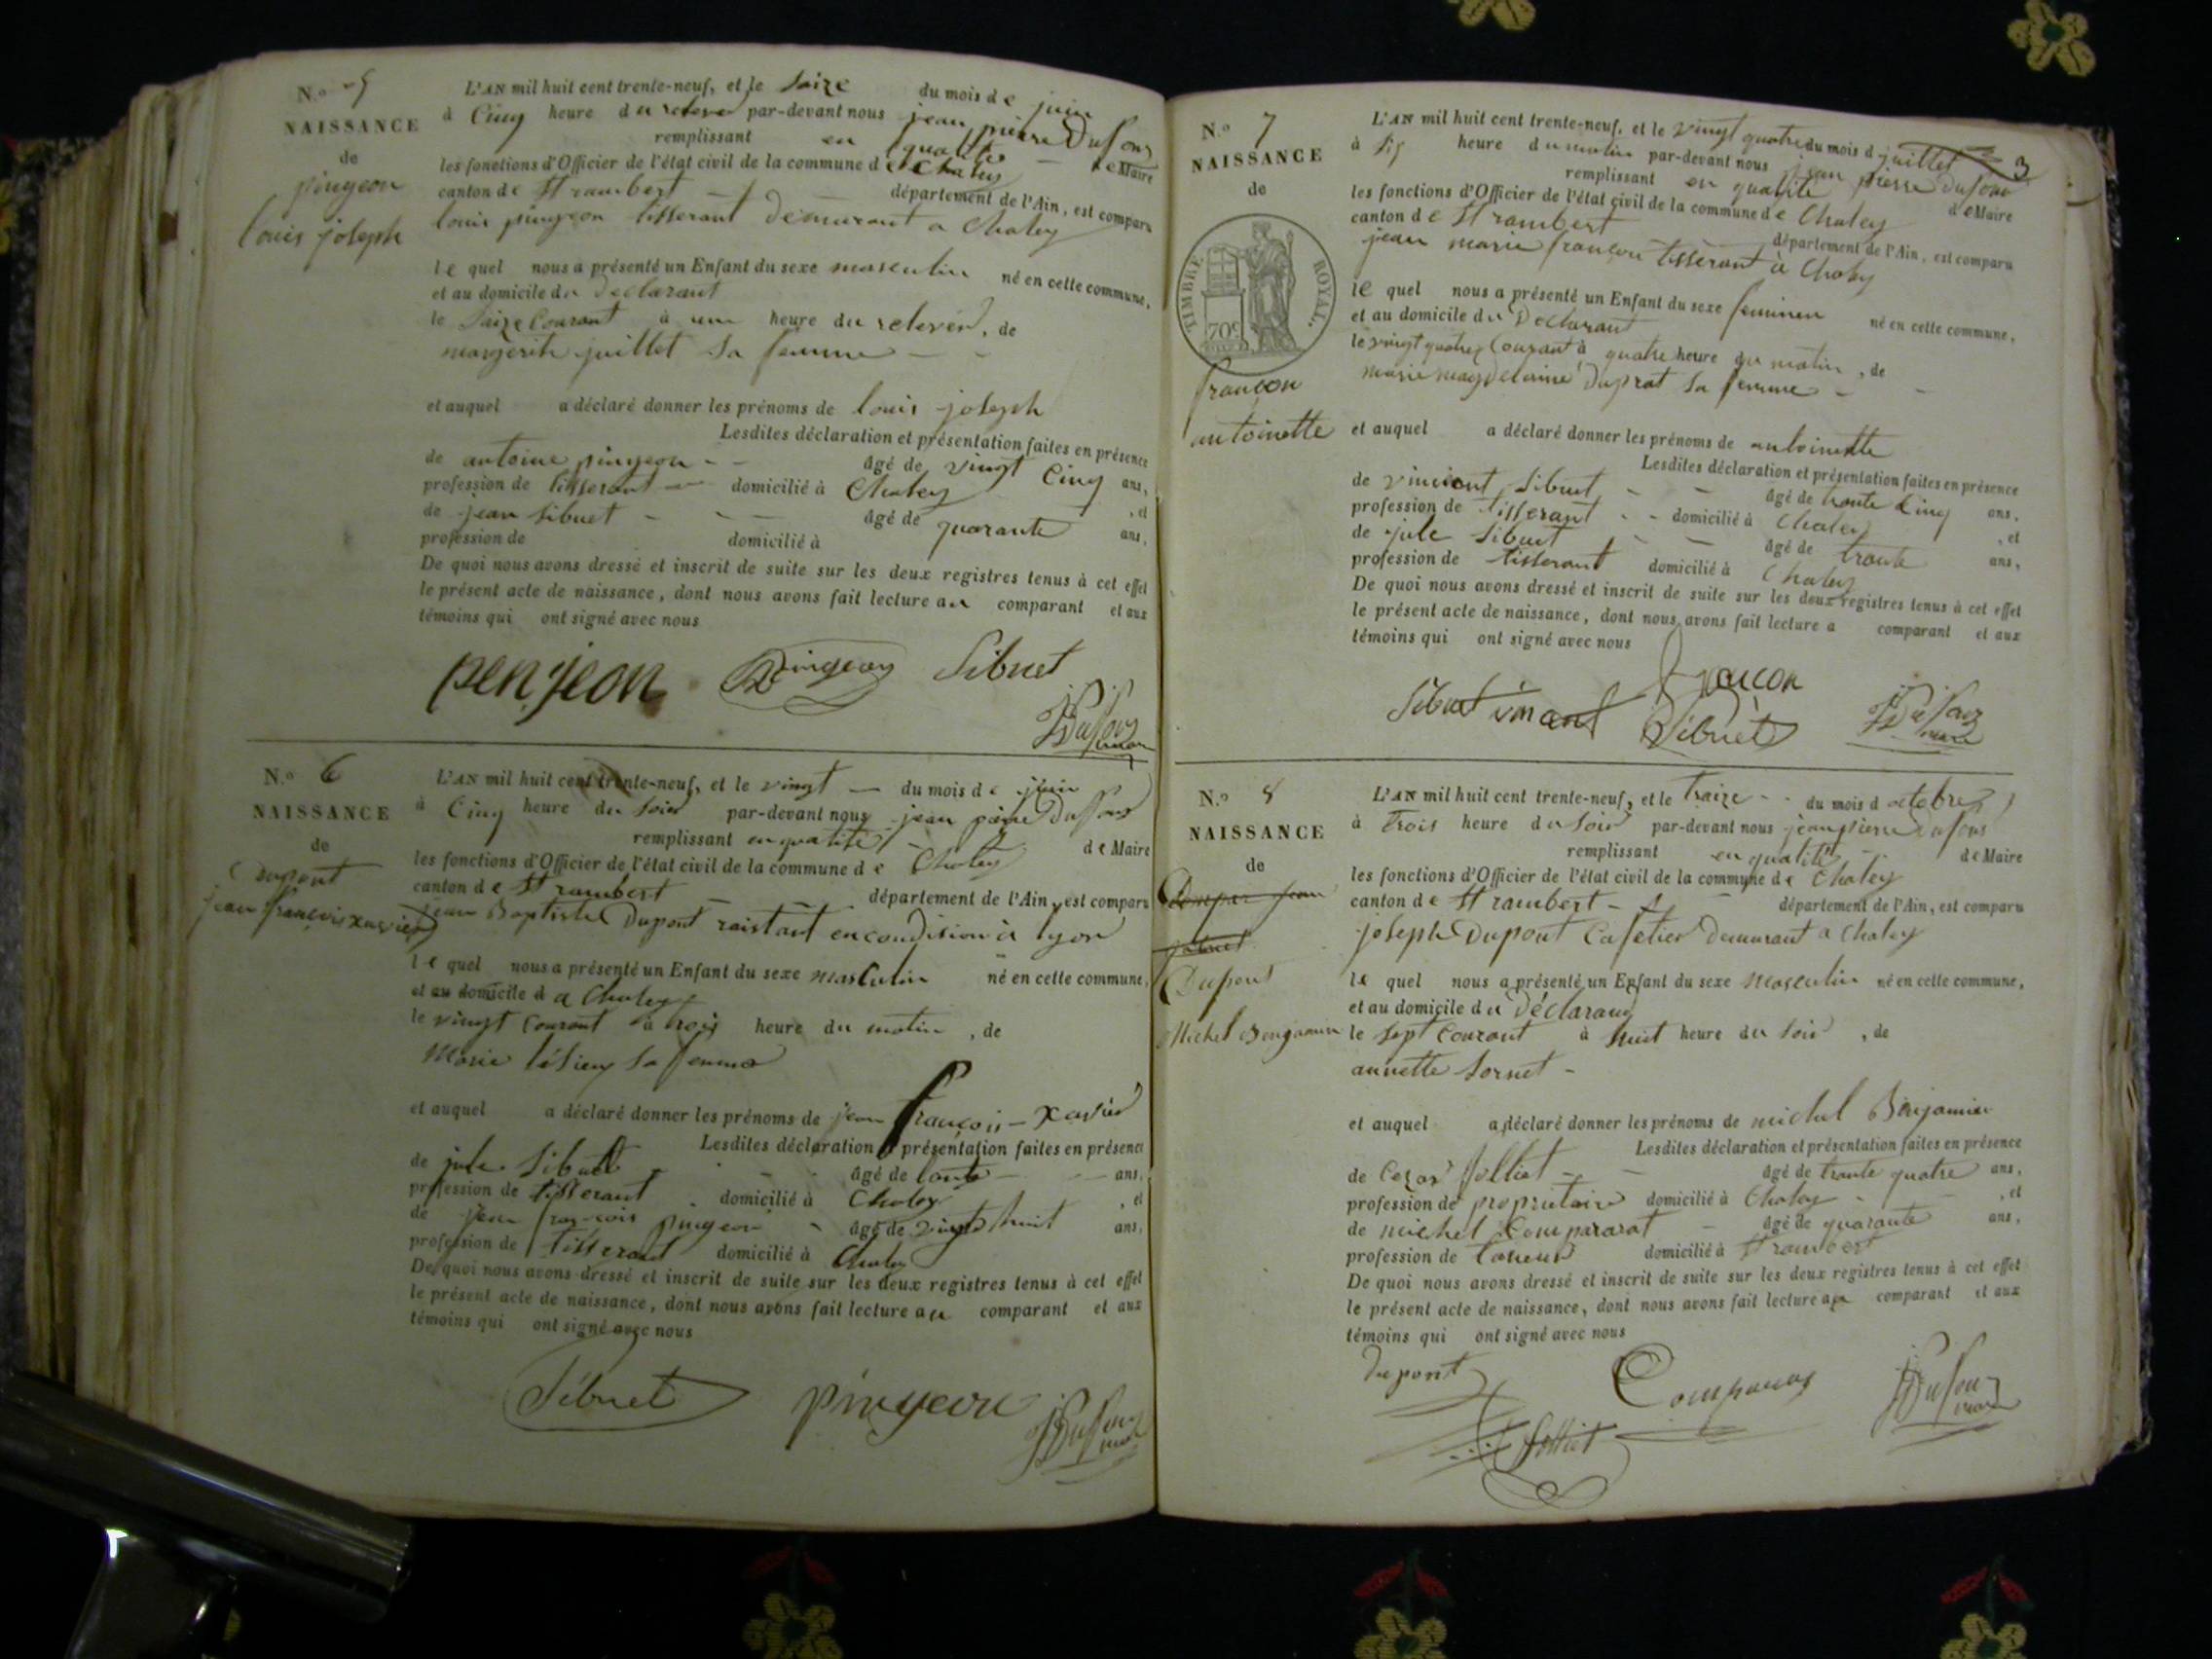 N.º 5
NAISSANCE
de
pingeon
louis joseph
L'AN mil huit cent trente-neuf, et le saize du mois de juin
à Cinq heure du relevé par-devant nous jean pierre Dufour
remplissant en qualité de Maire
les fonctions d'Officier de l'état civil de la commune de Chaley
canton de St rambert département de l'Ain, est comparu
louis pingeon tisserant demeurant a Chaley
le quel nous a présenté un Enfant du sexe masculin né en cette commune,
et au domicile du Declarant
le saize Courant à une heure du relevér, de
margerite juillet sa femme
et auquel a déclaré donner les prénoms de louis joseph
Lesdites déclaration et présentation faites en présence
de antoine pingeon âgé de vingt Cinq ans,
profession de tisserant domicilié à Chaley , et
de jean sibuet âgé de quarante ans,
profession de domicilié à
De quoi nous avons dressé et inscrit de suite sur les deux registres tenus à cet effet
le présent acte de naissance, dont nous avons fait lecture au comparant et aux
témoins qui ont signé avec nous
penjeon Pingeon Sibuet
JP Dufour maire
N.º 6
NAISSANCE
de
Dupont
jean françois xavier
L'AN mil huit cent trente-neuf, et le vingt du mois de juin
à Cinq heure du soir par-devant nous jean pierre Dufour
remplissant en qualité de Maire
les fonctions d'Officier de l'état civil de la commune de Chaley
canton de St rambert département de l'Ain, est comparu
jean Baptiste Dupont raistant en condision à lyon
le quel nous a présenté un Enfant du sexe masculin né en cette commune,
et au domicile d a Chaley
le vingt Courant à trois heure du matin , de
Marie sa femme
et auquel a déclaré donner les prénoms de jean françois xavier
Lesdites déclaration et présentation faites en présence
de jule Sibuet âgé de ans,
profession de tisserant domicilié à Chaley , et
de jean françois pingeon âgé de vingt huit ans,
profession de tisserant domicilié à Chaley
De quoi nous avons dressé et inscrit de suite sur les deux registres tenus à cet effet
le présent acte de naissance, dont nous avons fait lecture au comparant et aux
témoins qui ont signé avec nous
Sibuet pingeon JP Dufour maire
3
N.º 7
NAISSANCE
de
TIMBRE ROYAL.
70c
françon
antoinette
L'AN mil huit cent trente-neuf, et le vingt quatre du mois d juillet
à sis heure du matin par-devant nous jean pierre Dufour
remplissant en qualité de Maire
les fonctions d'Officier de l'état civil de la commune de Chaley
canton de St rambert département de l'Ain, est comparu
jean marie françon tisserant à Chaley
le quel nous a présenté un Enfant du sexe feminen né en cette commune,
et au domicile du Declarant
le vingt quatre Courant à quatre heure du matin , de
marie magdelaine Duprat sa femme
et auquel a déclaré donner les prénoms de antoinette
Lesdites déclaration et présentation faites en présence
de vinciont sibuet âgé de trante Cinq ans,
profession de tisserant domicilié à Chaley , et
de jule sibuet âgé de trante ans,
profession de tisserant domicilié à Chaley
De quoi nous avons dressé et inscrit de suite sur les deux registres tenus à cet effet
le présent acte de naissance, dont nous avons fait lecture a comparant et aux
témoins qui ont signé avec nous
françon
Sibuet Sibuet JP Dufour maire
N.º 8
NAISSANCE
de
Dupont
Michel Benjamin
L'AN mil huit cent trente-neuf, et le traize du mois d octobre
à trois heure du soir par-devant nous jean pierre Dufour
remplissant en qualité de Maire
les fonctions d'Officier de l'état civil de la commune de Chaley
canton de St rambert département de l'Ain, est comparu
joseph Dupont Cafetier Demeurant a Chaley
le quel nous a présenté un Enfant du sexe Masculin né en cette commune,
et au domicile du Déclarant
le sept Courant à huit heure du soir , de
annette sornet
et auquel a déclaré donner les prénoms de michel Benjamin
Lesdites déclaration et présentation faites en présence
de Cezar jolliet âgé de trante quatre ans,
profession de propriétaire domicilié à Chaley , et
de michel Compararat âgé de quarante ans,
profession de taneur domicilié à St rambert
De quoi nous avons dressé et inscrit de suite sur les deux registres tenus à cet effet
le présent acte de naissance, dont nous avons fait lecture au comparant et aux
témoins qui ont signé avec nous
dupont JP Dufour maire
jolliet